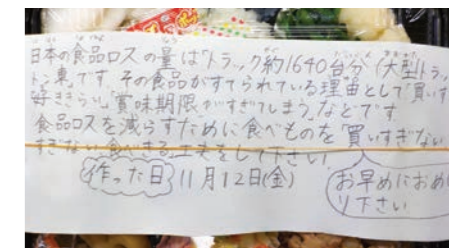 日本の食品ロスの量は「トラック約1640台分(大型トラッ
トン車)」です。その食品がすてられている理由として「買いす
好ききらい」「賞味期限がすぎてしまう」などです。
食品ロスを減らすために食べものを「買いすぎない
すぎない」「食べきる」工夫をして下さい!
作った日 11月12日(金)
お早めにおめ
り下さい